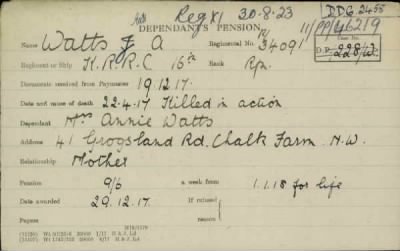 Reg XI 30-8-23 DDG.2455
DEPENDANT'S PENSION. 11/PP/46219
Name Watts J. A. Regimental No. R/34091 Case No.
D.P. 228/W.
Regiment or Ship K.R.R.C 16th Rank Rfn.
Documents received from Paymaster 19.12.17.
Date and cause of death 22.4.17 Killed in action
Dependant Mrs Annie Watts
Address 41 Grogsland Rd. Chalk Farm. N.W.
Relationship Mother
Pension 9/6 a week from 1.1.18 for life
Date awarded 29.12.17. If refused
reason
Papers